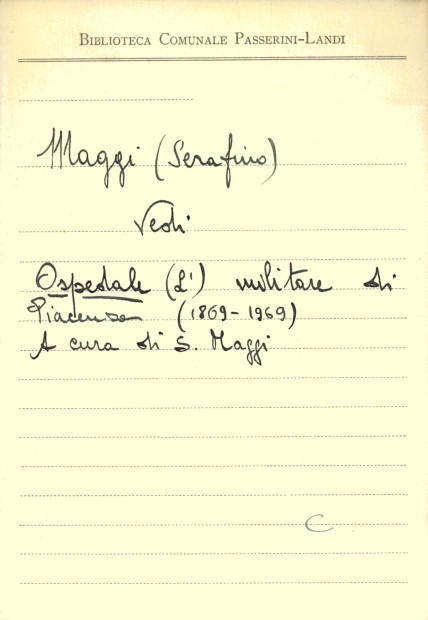 BIBLIOTECA COMUNALE PASSERINI-LANDI
Maggi (Serafino)
Vedi
Ospedale (L') militare di
Piacenza (1869-1969)
A cura di S. Maggi
C